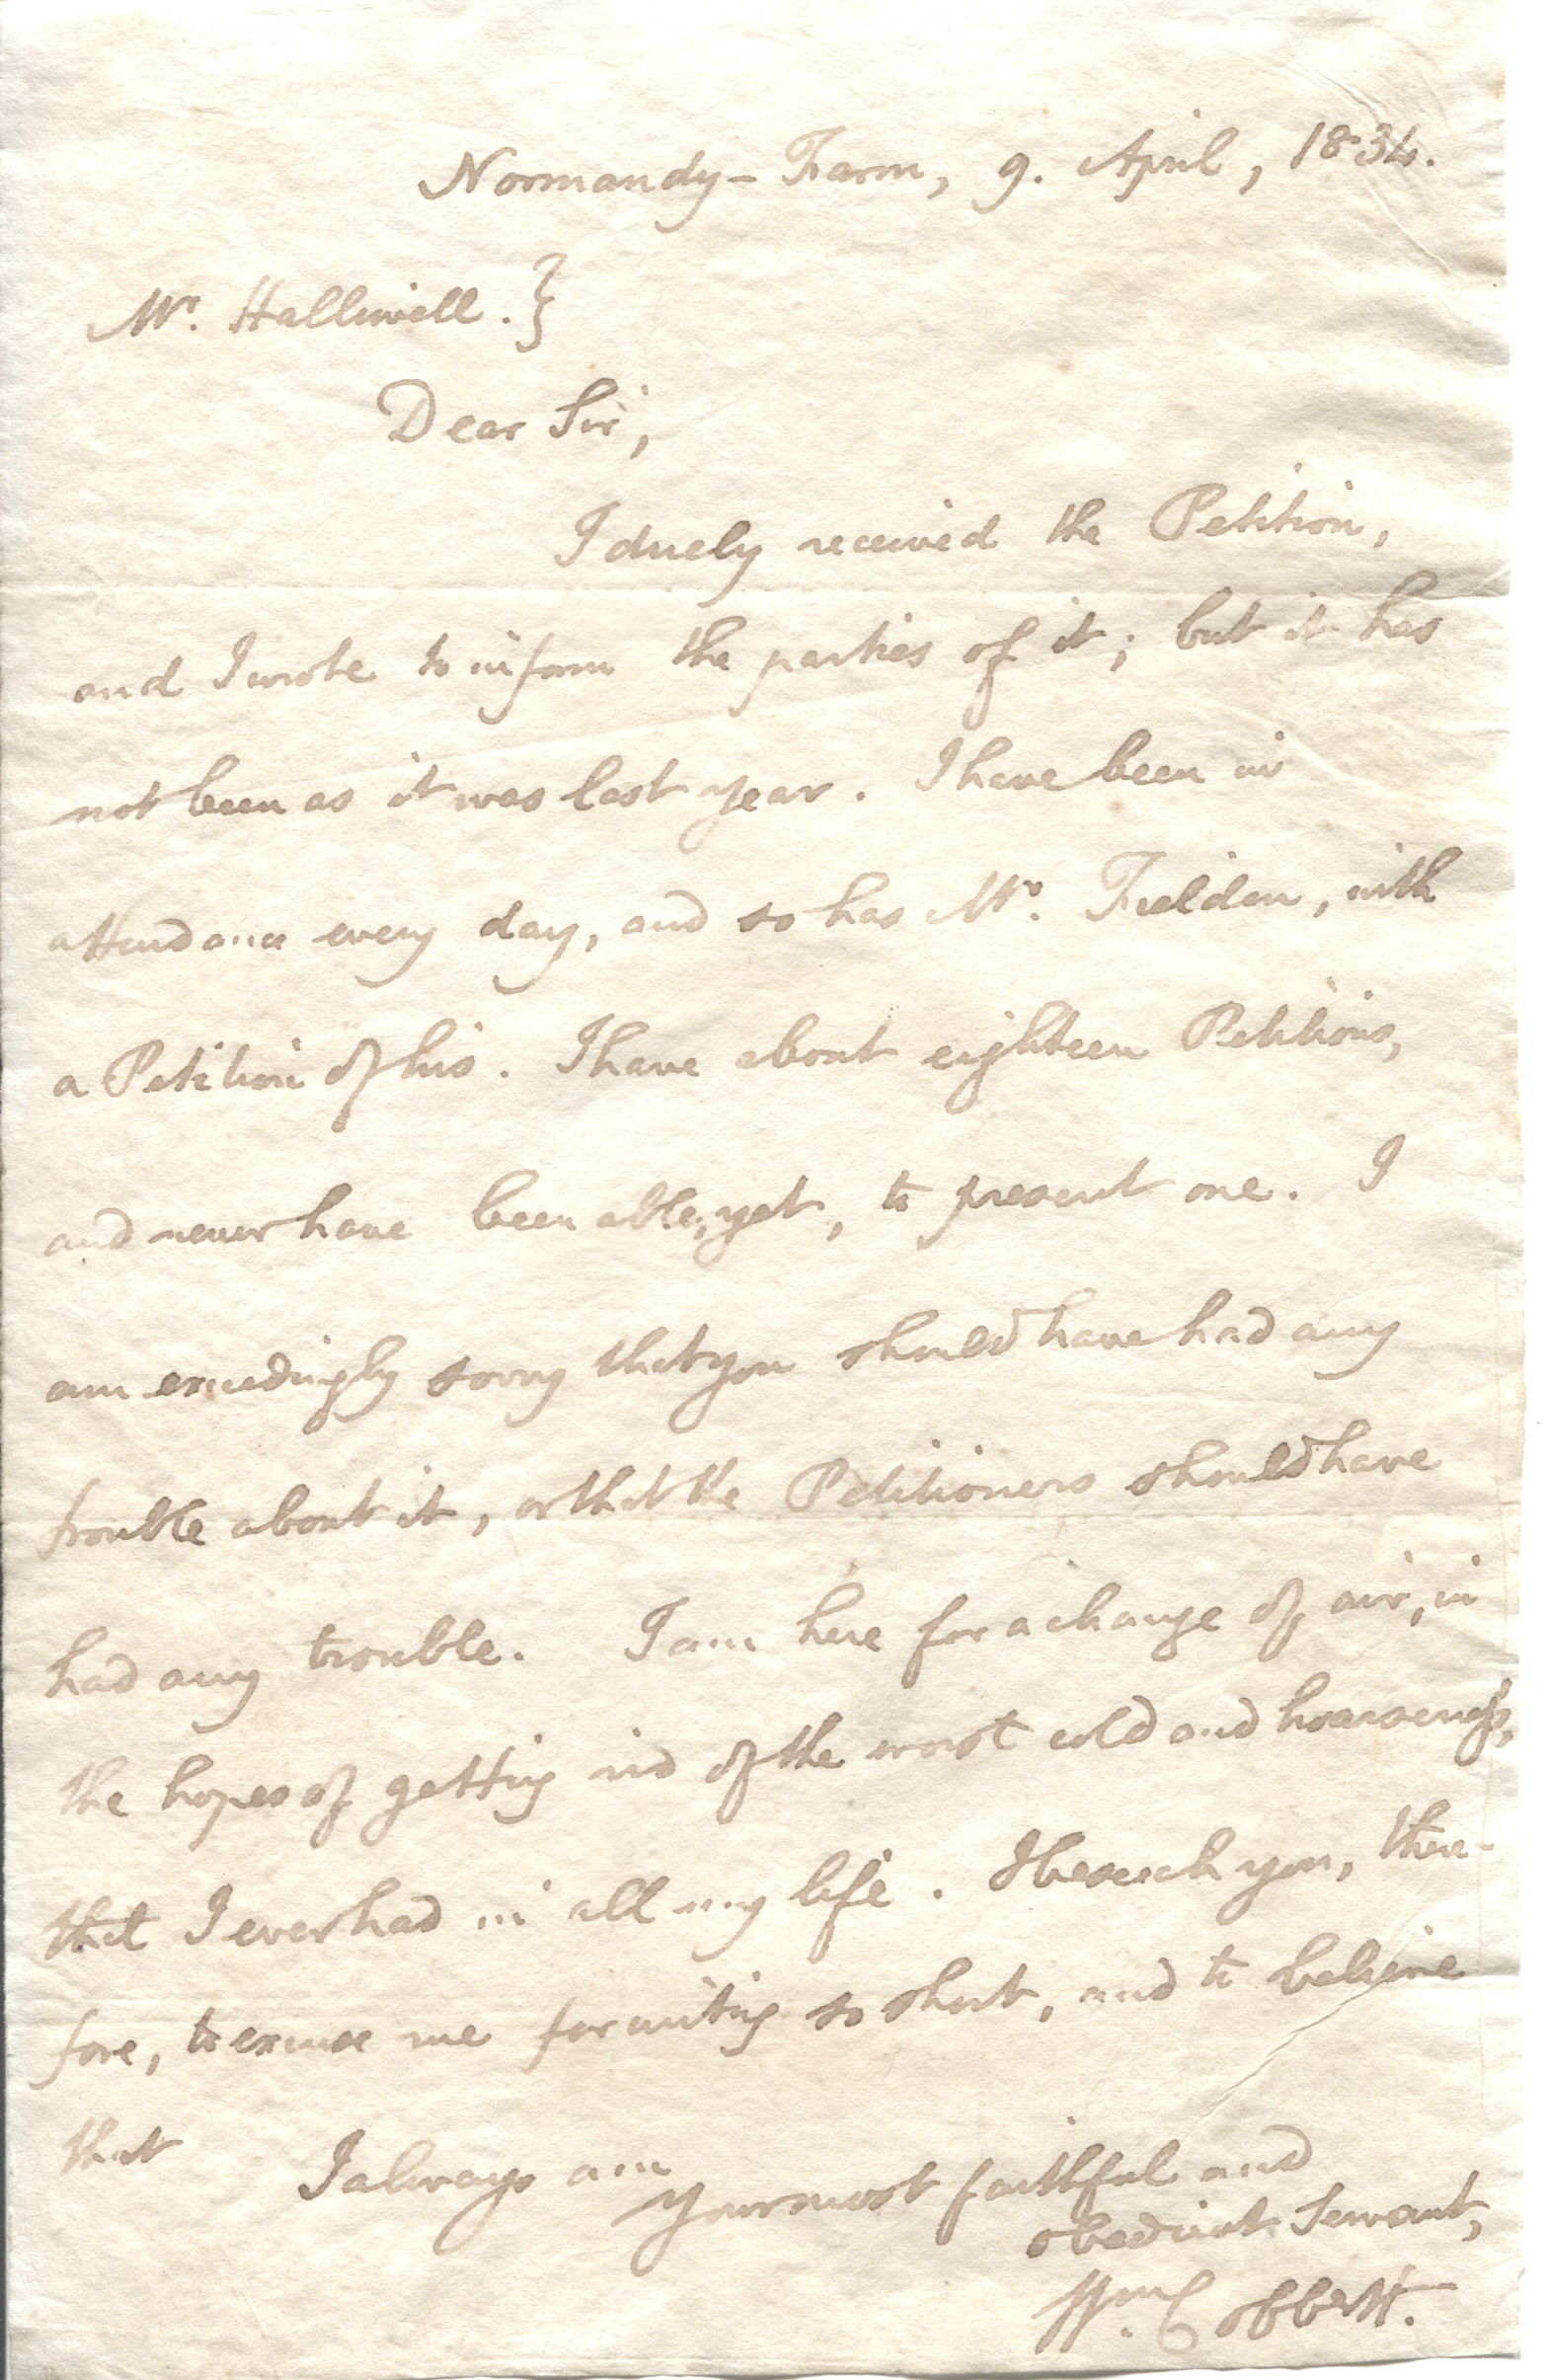 Normandy-Farm, 9. April, 1834.
Mr. Halliwell.}
Dear Sir,
I duely received the Petition,
and I wrote to inform the parties of it; but it has
not been as it was last year. I have been in
attendance every day, and so has Mr. Fielden, with
a Petition of his. I have about eighteen Petitions,
and never have been able, yet, to present one. I
am exceedingly sorry that you should have had any
trouble about it, or that the Petitioners should have
had any trouble. I am here for a change of air, in
the hopes of getting rid of the worst cold and hoarseness,
that I ever had in all my life. I beseech you, there-
fore, to excuse me for writing so short, and to believe
that I always am
your most faithful and
obedient Servant,
Wm. Cobbett.